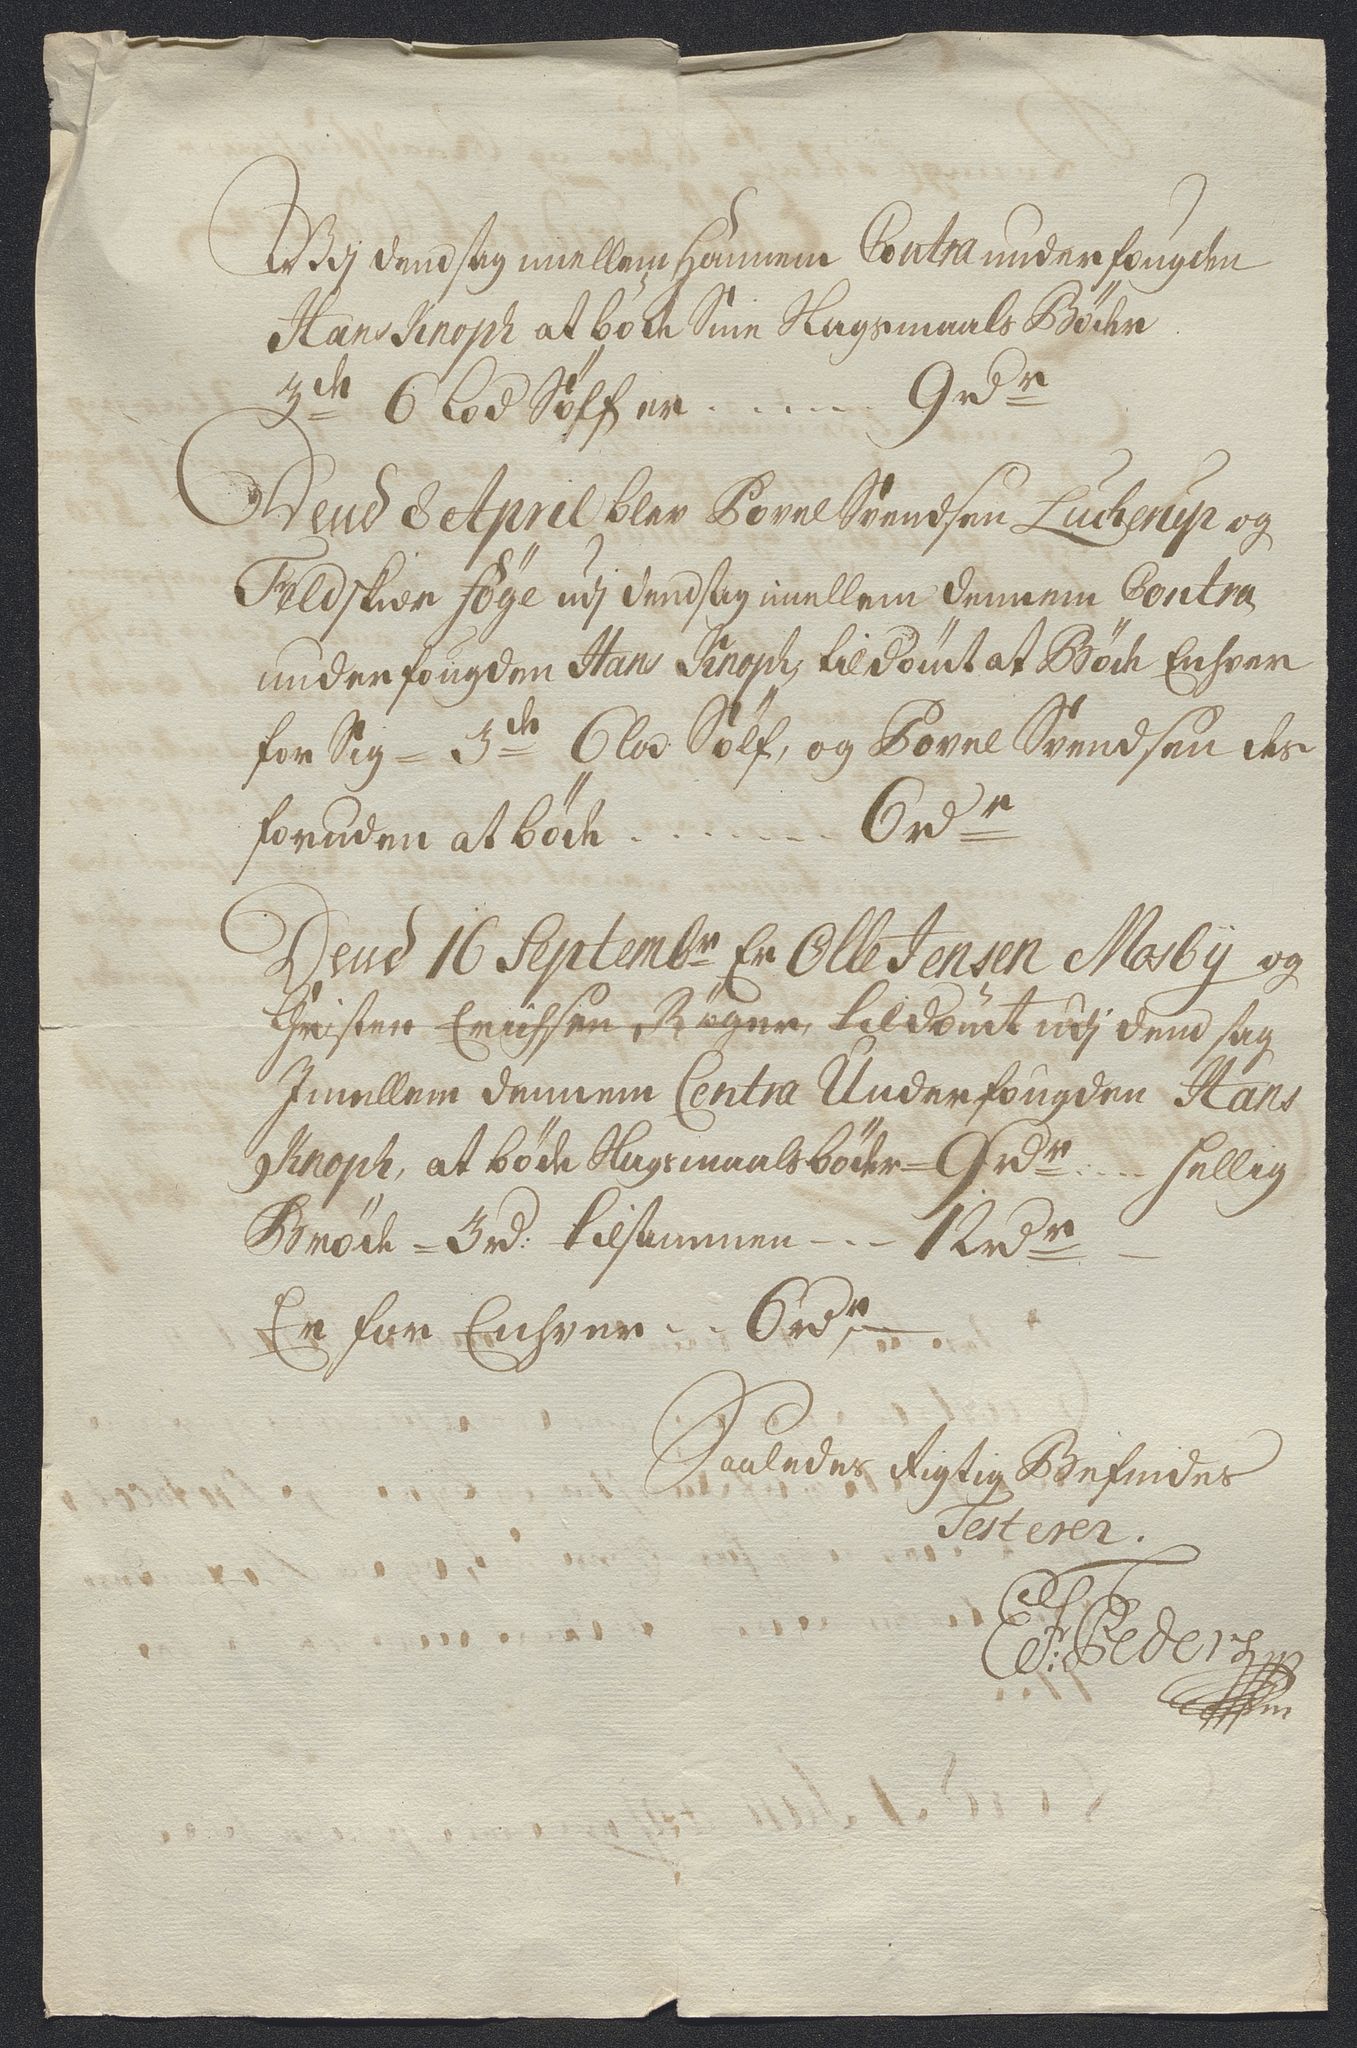 Udj dend sag imellem hannem Contra underfougden
Hans Knoph at böde Sine Slagsmaals Böder
3de 6 Lod Sölf er . . . . . . 9 rdr
Dend 8 April blev Povel Svendsen Lucherup og
Feldskiær Höÿe udj dend sag imellem dennem Contra
underfougden Hans Knoph, tildömt at Böde Enhver
for Sig = 3de 6 lod Sölf, og Povel Svendsen des
foruden at böde . . . . . . 6 rdr
Dend 16 Septembr Er Olle Jensen Mosbÿ og
Christen Erichsen Röger, tildömt udj dend sag
Imellem dennem Contra Underfougden Hans
Knoph, at böde Slagsmaalsböder = 9 rdr . . . . hellig
Bröde = 3 rd: tilsammen - . - 12 rdr
Er for Enhver . . . 6 rdr
Saaledes Rigtig Befindes
Testerer.
Pedersen